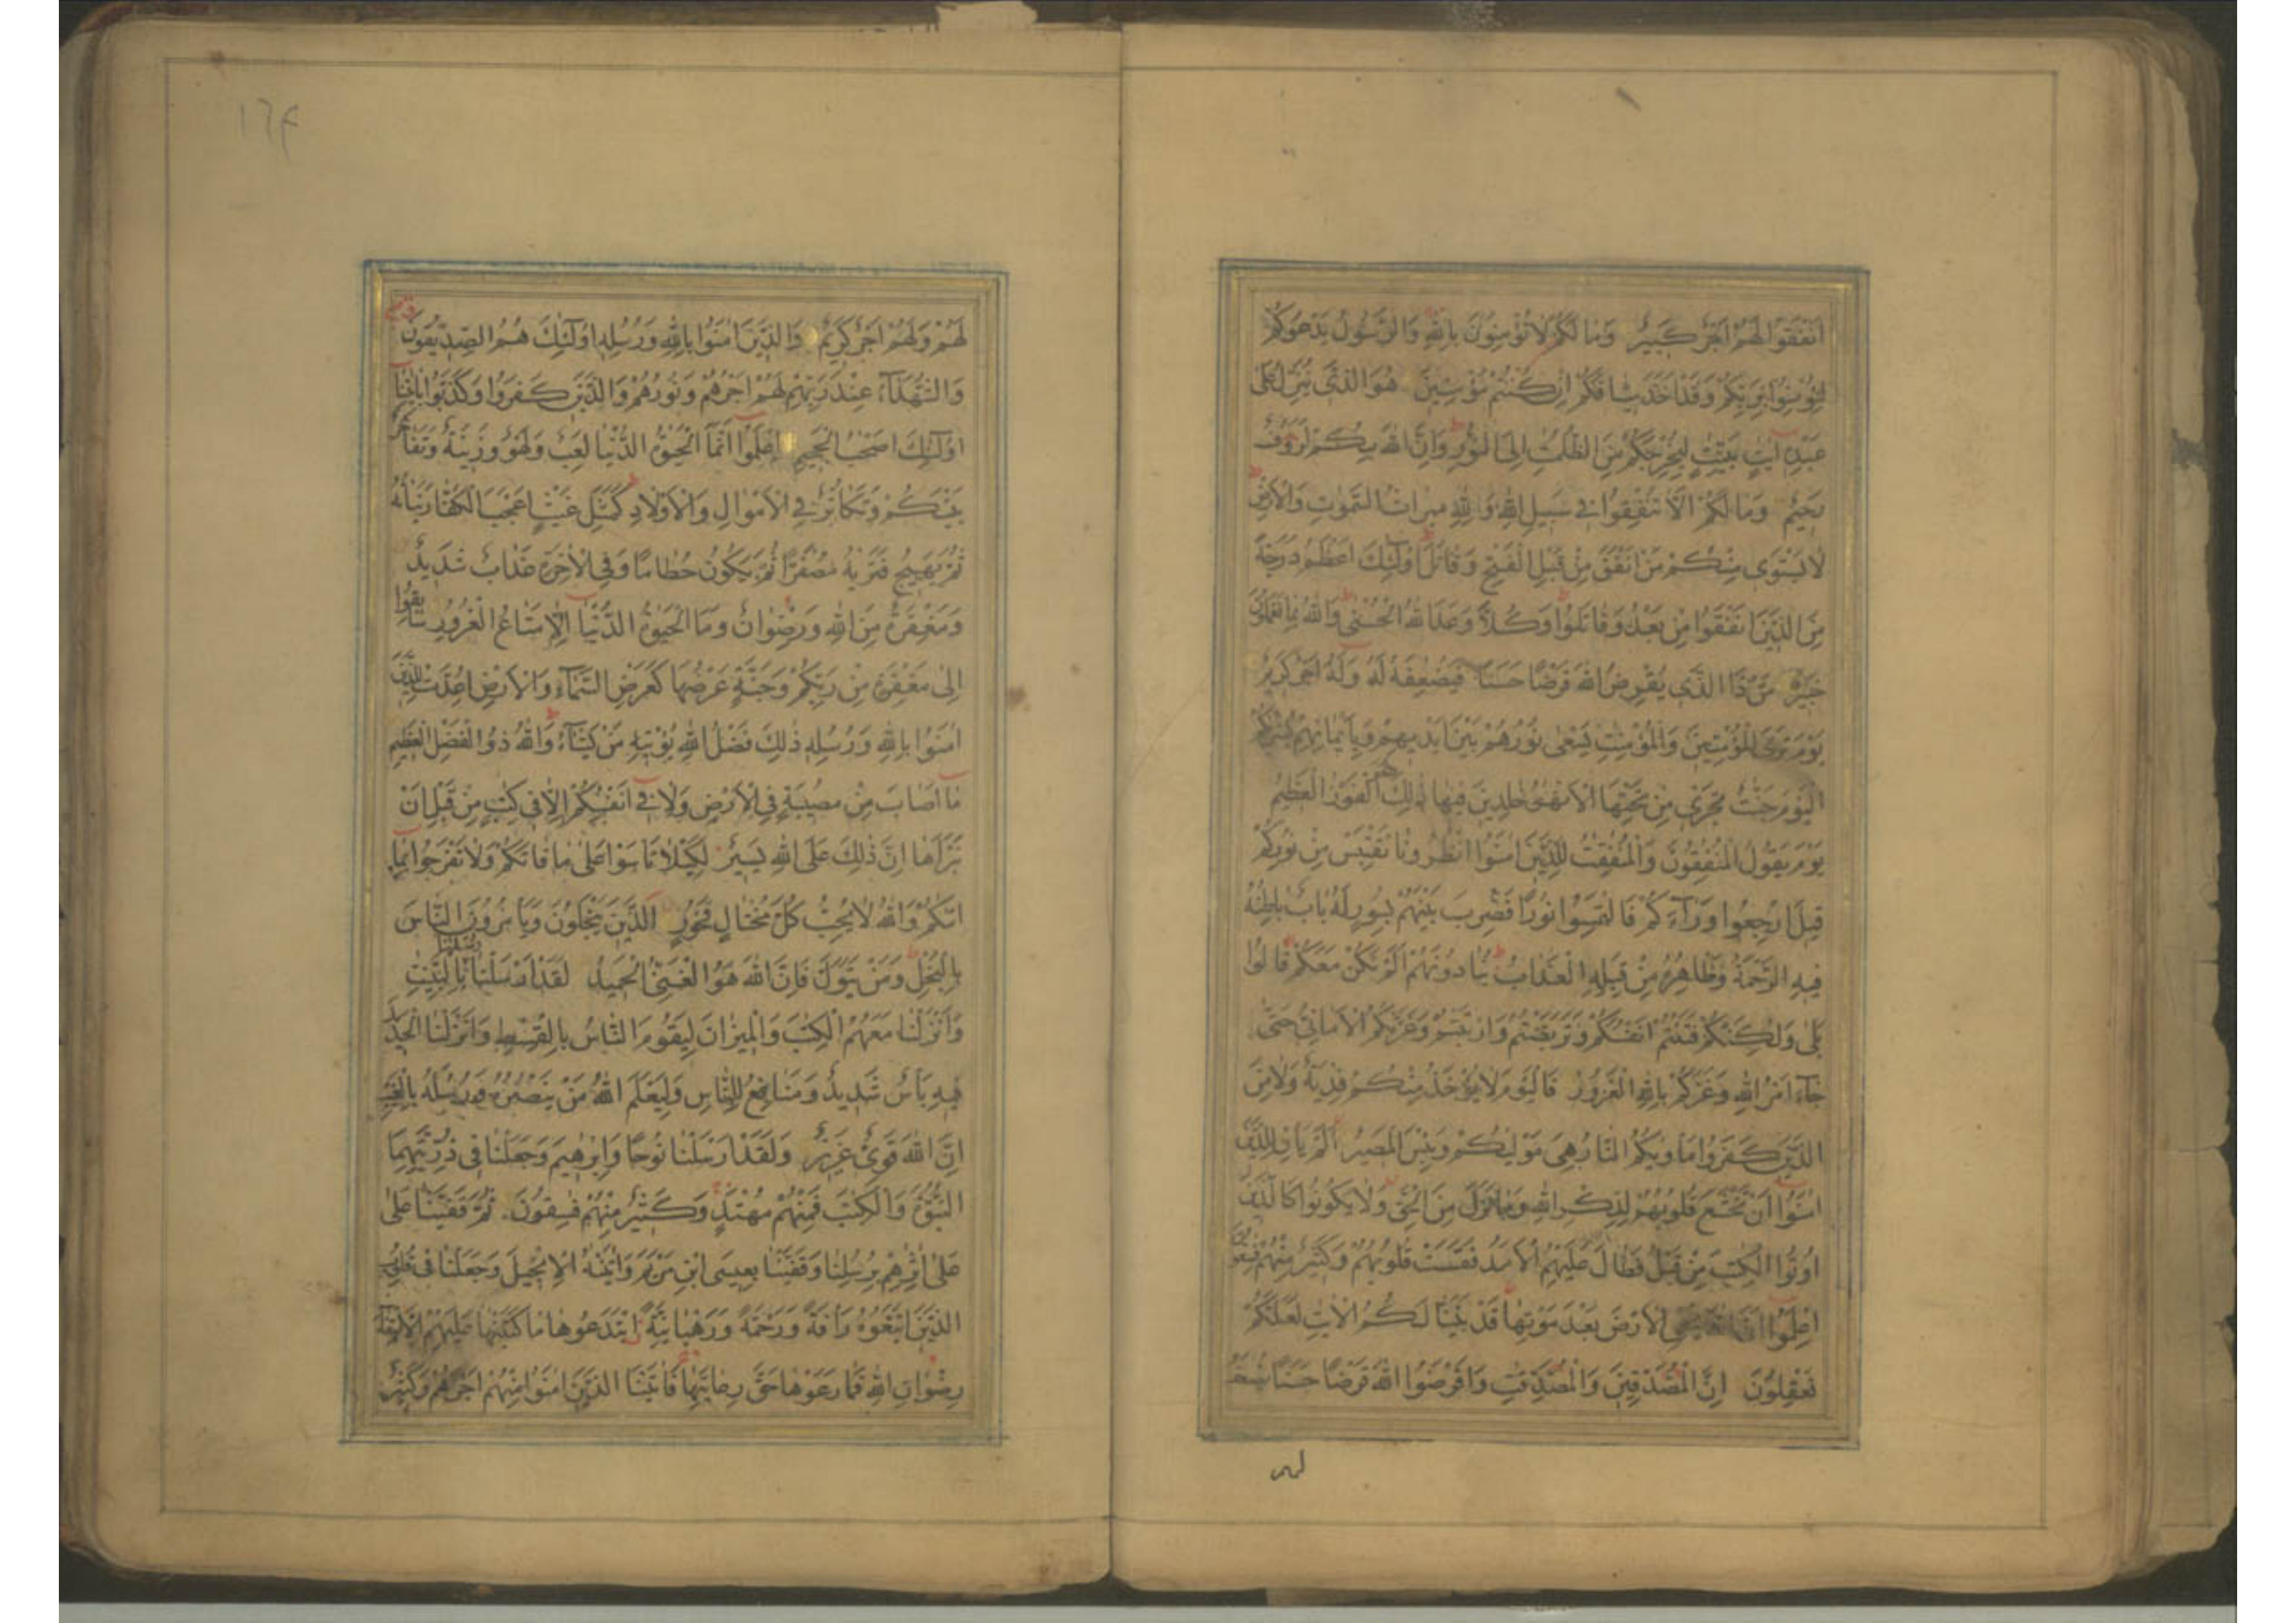 اَنْفَقُوا لَهُمْ اَجْرٌ كَبِيْرٌ وَمَا لَكُمْ لَا تُؤْمِنُوْنَ بِاللّٰهِ وَالرَّسُوْلُ يَدْعُوْكُمْ
لِتُؤْمِنُوْا بِرَبِّكُمْ وَقَدْ اَخَذَ مِيْثَاقَكُمْ اِنْ كُنْتُمْ مُؤْمِنِيْنَ هُوَ الَّذِىْ يُنَزِّلُ عَلٰى
عَبْدِهٖ اٰيٰتٍ بَيِّنٰتٍ لِيُخْرِجَكُمْ مِنَ الظُّلُمٰتِ اِلَى النُّوْرِ وَاِنَّ اللّٰهَ بِكُمْ لَرَؤُفٌ
رَحِيْمٌ وَمَا لَكُمْ اَلَّا تُنْفِقُوْا فِىْ سَبِيْلِ اللّٰهِ وَلِلّٰهِ مِيْرَاثُ السَّمٰوٰتِ وَالْاَرْضِ
لَا يَسْتَوِىْ مِنْكُمْ مَنْ اَنْفَقَ مِنْ قَبْلِ الْفَتْحِ وَقَاتَلَ اُولٰٓئِكَ اَعْظَمُ دَرَجَةً
مِنَ الَّذِيْنَ اَنْفَقُوْا مِنْ بَعْدُ وَقَاتَلُوْا وَكُلًّا وَعَدَ اللّٰهُ الْحُسْنٰى وَاللّٰهُ بِمَا تَعْمَلُوْنَ
خَبِيْرٌ مَنْ ذَا الَّذِىْ يُقْرِضُ اللّٰهَ قَرْضًا حَسَنًا فَيُضٰعِفَهٗ لَهٗ وَلَهٗ اَجْرٌ كَرِيْمٌ
يَوْمَ تَرَى الْمُؤْمِنِيْنَ وَالْمُؤْمِنٰتِ يَسْعٰى نُوْرُهُمْ بَيْنَ اَيْدِيْهِمْ وَبِاَيْمَانِهِمْ بُشْرٰىكُمُ
الْيَوْمَ جَنّٰتٌ تَجْرِىْ مِنْ تَحْتِهَا الْاَنْهٰرُ خٰلِدِيْنَ فِيْهَا ذٰلِكَ هُوَ الْفَوْزُ الْعَظِيْمُ
يَوْمَ يَقُوْلُ الْمُنٰفِقُوْنَ وَالْمُنٰفِقٰتُ لِلَّذِيْنَ اٰمَنُوا انْظُرُوْنَا نَقْتَبِسْ مِنْ نُوْرِكُمْ
قِيْلَ ارْجِعُوْا وَرَآءَكُمْ فَالْتَمِسُوْا نُوْرًا فَضُرِبَ بَيْنَهُمْ بِسُوْرٍ لَهٗ بَابٌ بَاطِنُهٗ
فِيْهِ الرَّحْمَةُ وَظَاهِرُهٗ مِنْ قِبَلِهِ الْعَذَابُ يُنَادُوْنَهُمْ اَلَمْ نَكُنْ مَعَكُمْ قَالُوْا
بَلٰى وَلٰكِنَّكُمْ فَتَنْتُمْ اَنْفُسَكُمْ وَتَرَبَّصْتُمْ وَارْتَبْتُمْ وَغَرَّتْكُمُ الْاَمَانِىُّ حَتّٰى
جَآءَ اَمْرُ اللّٰهِ وَغَرَّكُمْ بِاللّٰهِ الْغَرُوْرُ فَالْيَوْمَ لَا يُؤْخَذُ مِنْكُمْ فِدْيَةٌ وَلَا مِنَ
الَّذِيْنَ كَفَرُوْا مَاْوٰىكُمُ النَّارُ هِىَ مَوْلٰىكُمْ وَبِئْسَ الْمَصِيْرُ اَلَمْ يَاْنِ لِلَّذِيْنَ
اٰمَنُوْا اَنْ تَخْشَعَ قُلُوْبُهُمْ لِذِكْرِ اللّٰهِ وَمَا نَزَلَ مِنَ الْحَقِّ وَلَا يَكُوْنُوْا كَالَّذِيْنَ
اُوْتُوا الْكِتٰبَ مِنْ قَبْلُ فَطَالَ عَلَيْهِمُ الْاَمَدُ فَقَسَتْ قُلُوْبُهُمْ وَكَثِيْرٌ مِنْهُمْ فٰسِقُوْنَ
اِعْلَمُوْا اَنَّ اللّٰهَ يُحْىِ الْاَرْضَ بَعْدَ مَوْتِهَا قَدْ بَيَّنَّا لَكُمُ الْاٰيٰتِ لَعَلَّكُمْ
تَعْقِلُوْنَ اِنَّ الْمُصَّدِّقِيْنَ وَالْمُصَّدِّقٰتِ وَاَقْرَضُوا اللّٰهَ قَرْضًا حَسَنًا يُضٰعَفُ
لهم
١٦٤
لَهُمْ وَلَهُمْ اَجْرٌ كَرِيْمٌ وَالَّذِيْنَ اٰمَنُوْا بِاللّٰهِ وَرُسُلِهٖ اُولٰٓئِكَ هُمُ الصِّدِّيْقُوْنَ
وَالشُّهَدَآءُ عِنْدَ رَبِّهِمْ لَهُمْ اَجْرُهُمْ وَنُوْرُهُمْ وَالَّذِيْنَ كَفَرُوْا وَكَذَّبُوْا بِاٰيٰتِنَا
اُولٰٓئِكَ اَصْحٰبُ الْجَحِيْمِ اِعْلَمُوْا اَنَّمَا الْحَيٰوةُ الدُّنْيَا لَعِبٌ وَلَهْوٌ وَزِيْنَةٌ وَتَفَاخُرٌ
بَيْنَكُمْ وَتَكَاثُرٌ فِى الْاَمْوَالِ وَالْاَوْلَادِ كَمَثَلِ غَيْثٍ اَعْجَبَ الْكُفَّارَ نَبَاتُهٗ
ثُمَّ يَهِيْجُ فَتَرٰىهُ مُصْفَرًّا ثُمَّ يَكُوْنُ حُطَامًا وَفِى الْاٰخِرَةِ عَذَابٌ شَدِيْدٌ
وَمَغْفِرَةٌ مِنَ اللّٰهِ وَرِضْوَانٌ وَمَا الْحَيٰوةُ الدُّنْيَا اِلَّا مَتَاعُ الْغُرُوْرِ سَابِقُوْا
اِلٰى مَغْفِرَةٍ مِنْ رَبِّكُمْ وَجَنَّةٍ عَرْضُهَا كَعَرْضِ السَّمَآءِ وَالْاَرْضِ اُعِدَّتْ لِلَّذِيْنَ
اٰمَنُوْا بِاللّٰهِ وَرُسُلِهٖ ذٰلِكَ فَضْلُ اللّٰهِ يُؤْتِيْهِ مَنْ يَشَآءُ وَاللّٰهُ ذُو الْفَضْلِ الْعَظِيْمِ
مَا اَصَابَ مِنْ مُصِيْبَةٍ فِى الْاَرْضِ وَلَا فِىْ اَنْفُسِكُمْ اِلَّا فِىْ كِتٰبٍ مِنْ قَبْلِ اَنْ
نَبْرَاَهَا اِنَّ ذٰلِكَ عَلَى اللّٰهِ يَسِيْرٌ لِكَيْلَا تَاْسَوْا عَلٰى مَا فَاتَكُمْ وَلَا تَفْرَحُوْا بِمَا
اٰتٰىكُمْ وَاللّٰهُ لَا يُحِبُّ كُلَّ مُخْتَالٍ فَخُوْرٍ اَلَّذِيْنَ يَبْخَلُوْنَ وَيَاْمُرُوْنَ النَّاسَ
بِالْبُخْلِ وَمَنْ يَتَوَلَّ فَاِنَّ اللّٰهَ هُوَ الْغَنِىُّ الْحَمِيْدُ لَقَدْ اَرْسَلْنَا رُسُلَنَا بِالْبَيِّنٰتِ
وَاَنْزَلْنَا مَعَهُمُ الْكِتٰبَ وَالْمِيْزَانَ لِيَقُوْمَ النَّاسُ بِالْقِسْطِ وَاَنْزَلْنَا الْحَدِيْدَ
فِيْهِ بَاْسٌ شَدِيْدٌ وَمَنَافِعُ لِلنَّاسِ وَلِيَعْلَمَ اللّٰهُ مَنْ يَنْصُرُهٗ وَرُسُلَهٗ بِالْغَيْبِ
اِنَّ اللّٰهَ قَوِىٌّ عَزِيْزٌ وَلَقَدْ اَرْسَلْنَا نُوْحًا وَاِبْرٰهِيْمَ وَجَعَلْنَا فِىْ ذُرِّيَّتِهِمَا
النُّبُوَّةَ وَالْكِتٰبَ فَمِنْهُمْ مُهْتَدٍ وَكَثِيْرٌ مِنْهُمْ فٰسِقُوْنَ ثُمَّ قَفَّيْنَا عَلٰى
عَلٰى اٰثَارِهِمْ بِرُسُلِنَا وَقَفَّيْنَا بِعِيْسَى ابْنِ مَرْيَمَ وَاٰتَيْنٰهُ الْاِنْجِيْلَ وَجَعَلْنَا فِىْ قُلُوْبِ
الَّذِيْنَ اتَّبَعُوْهُ رَاْفَةً وَرَحْمَةً وَرَهْبَانِيَّةً ابْتَدَعُوْهَا مَا كَتَبْنٰهَا عَلَيْهِمْ اِلَّا ابْتِغَآءَ
رِضْوَانِ اللّٰهِ فَمَا رَعَوْهَا حَقَّ رِعَايَتِهَا فَاٰتَيْنَا الَّذِيْنَ اٰمَنُوْا مِنْهُمْ اَجْرَهُمْ وَكَثِيْرٌ